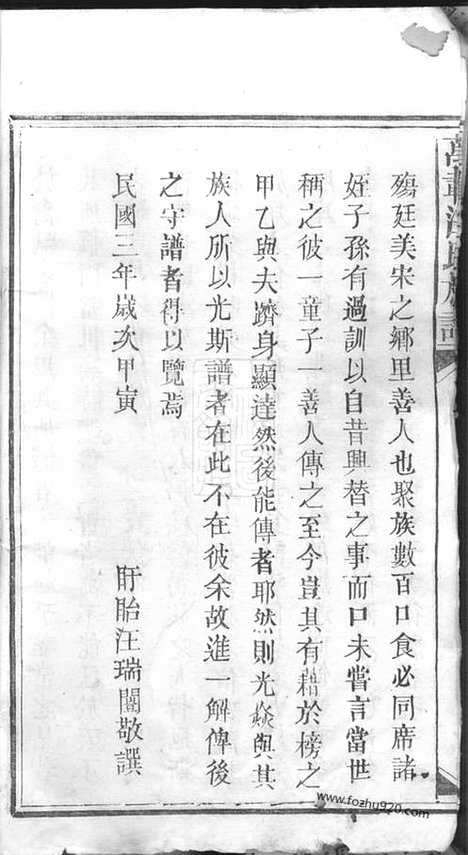 殤廷美宋之鄉里善人也聚族數百口食必同席諸
姪子孫有過訓以自昔興替之事而口未嘗言當世
稱之彼一童子一善人傳之至今豈其有藉於榜之
甲乙與夫躋身顯達然後能傳者耶然則光燄與其
族人所以光斯譜者在此不在彼余故進一解俾後
之守譜者得以覽焉
民國三年歲次甲寅
盱眙汪瑞闓敬譔
www.fozhu920.com